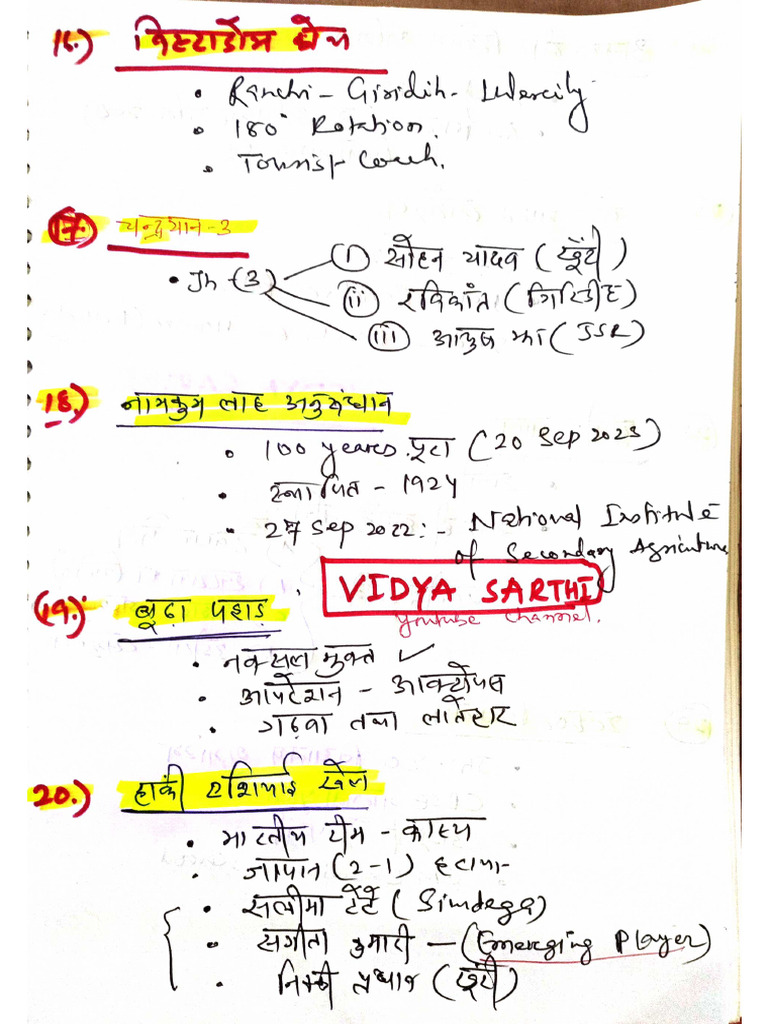 16.) विस्टाडोम ट्रेन
• Ranchi - Giridih - Intercity
• 180° Rotation.
• Tourist Coach.
17. चन्द्रयान-3
• Jh - (3)
(i) सोहन यादव (खूँटी)
(ii) रविकांत (गिरिडीह)
(iii) आयुष झा (JSR)
18.) नामकुम लाह अनुसंधान
• 100 years पूरा (20 Sep 2023)
• स्थापित - 1924
• 27 Sep 2022 :- National Institute
of Secondary Agriculture
VIDYA SARTHI
Youtube Channel.
19.) बूढ़ा पहाड़
• नक्सल मुक्त ✓
• आपरेशन - आक्टोपस
• गढ़वा तथा लातेहार
20.) हाकी एशियाई खेल
• भारतीय टीम - कांस्य
• जापान (2-1) हराया
• सलीमा टेटे (Simdega)
• संगीता कुमारी - (Emerging Player)
• निक्की प्रधान (खूंटी)